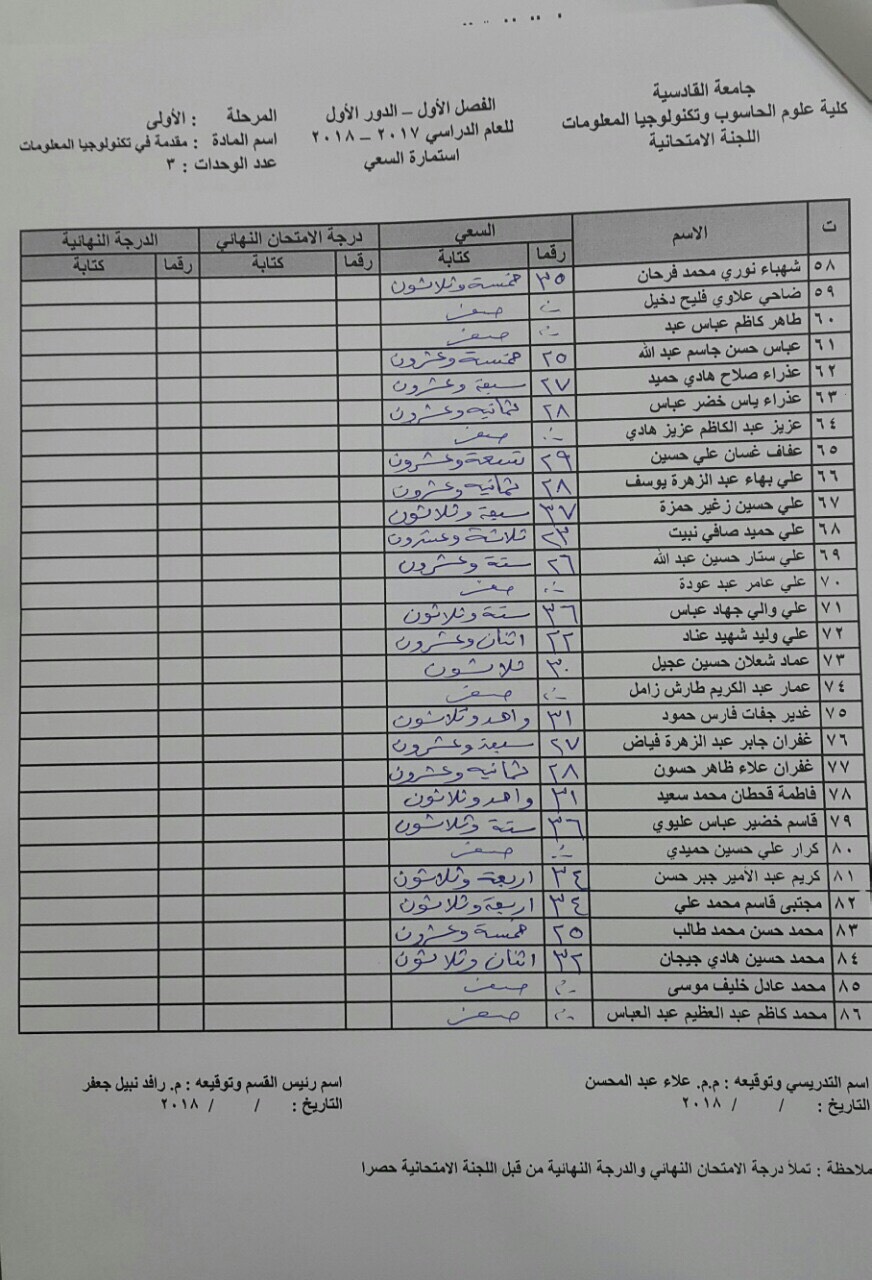 جامعة القادسية
كلية علوم الحاسوب وتكنولوجيا المعلومات
اللجنة الامتحانية
الفصل الأول – الدور الأول
للعام الدراسي ٢٠١٧ – ٢٠١٨
استمارة السعي
المرحلة : الأولى
اسم المادة : مقدمة في تكنولوجيا المعلومات
عدد الوحدات : ٣
ت الاسم السعي درجة الامتحان النهائي الدرجة النهائية
رقما كتابة رقما كتابة رقما كتابة
٥٨ شهباء نوري محمد فرحان ٣٥ خمسة وثلاثون
٥٩ ضاحي علاوي فليح دخيل صفر
٦٠ طاهر كاظم عباس عبد صفر
٦١ عباس حسن جاسم عبد الله ٢٥ خمسة وعشرون
٦٢ عذراء صلاح هادي حميد ٢٧ سبعة وعشرون
٦٣ عذراء ياس خضر عباس ٢٨ ثمانيه وعشرون
٦٤ عزيز عبد الكاظم عزيز هادي صفر
٦٥ عفاف غسان علي حسين ٢٩ تسعة وعشرون
٦٦ علي بهاء عبد الزهرة يوسف ٢٨ ثمانيه وعشرون
٦٧ علي حسين زغير حمزة ٣٧ سبعة وثلاثون
٦٨ علي حميد صافي نبيت ٢٣ ثلاثة وعشرون
٦٩ علي ستار حسين عبد الله ٢٦ ستة وعشرون
٧٠ علي عامر عبد عودة صفر
٧١ علي والي جهاد عباس ٣٦ ستة وثلاثون
٧٢ علي وليد شهيد عناد ٢٢ اثنان وعشرون
٧٣ عماد شعلان حسين عجيل ٣٠ ثلاثون
٧٤ عمار عبد الكريم طارش زامل صفر
٧٥ غدير جفات فارس حمود ٣١ واحد وثلاثون
٧٦ غفران جابر عبد الزهرة فياض ٢٧ سبعة وعشرون
٧٧ غفران علاء ظاهر حسون ٢٨ ثمانيه وعشرون
٧٨ فاطمة قحطان محمد سعيد ٣١ واحد وثلاثون
٧٩ قاسم خضير عباس عليوي ٣٦ ستة وثلاثون
٨٠ كرار علي حسين حميدي صفر
٨١ كريم عبد الأمير جبر حسن ٣٤ اربعة وثلاثون
٨٢ مجتبى قاسم محمد علي ٣٤ اربعة وثلاثون
٨٣ محمد حسن محمد طالب ٢٥ خمسة وعشرون
٨٤ محمد حسين هادي جيجان ٣٢ اثنان وثلاثون
٨٥ محمد عادل خليف موسى صفر
٨٦ محمد كاظم عبد العظيم عبد العباس صفر
اسم التدريسي وتوقيعه : م.م. علاء عبد المحسن
التاريخ : / / ٢٠١٨
اسم رئيس القسم وتوقيعه : م. رافد نبيل جعفر
التاريخ : / / ٢٠١٨
ملاحظة : تملأ درجة الامتحان النهائي والدرجة النهائية من قبل اللجنة الامتحانية حصرا